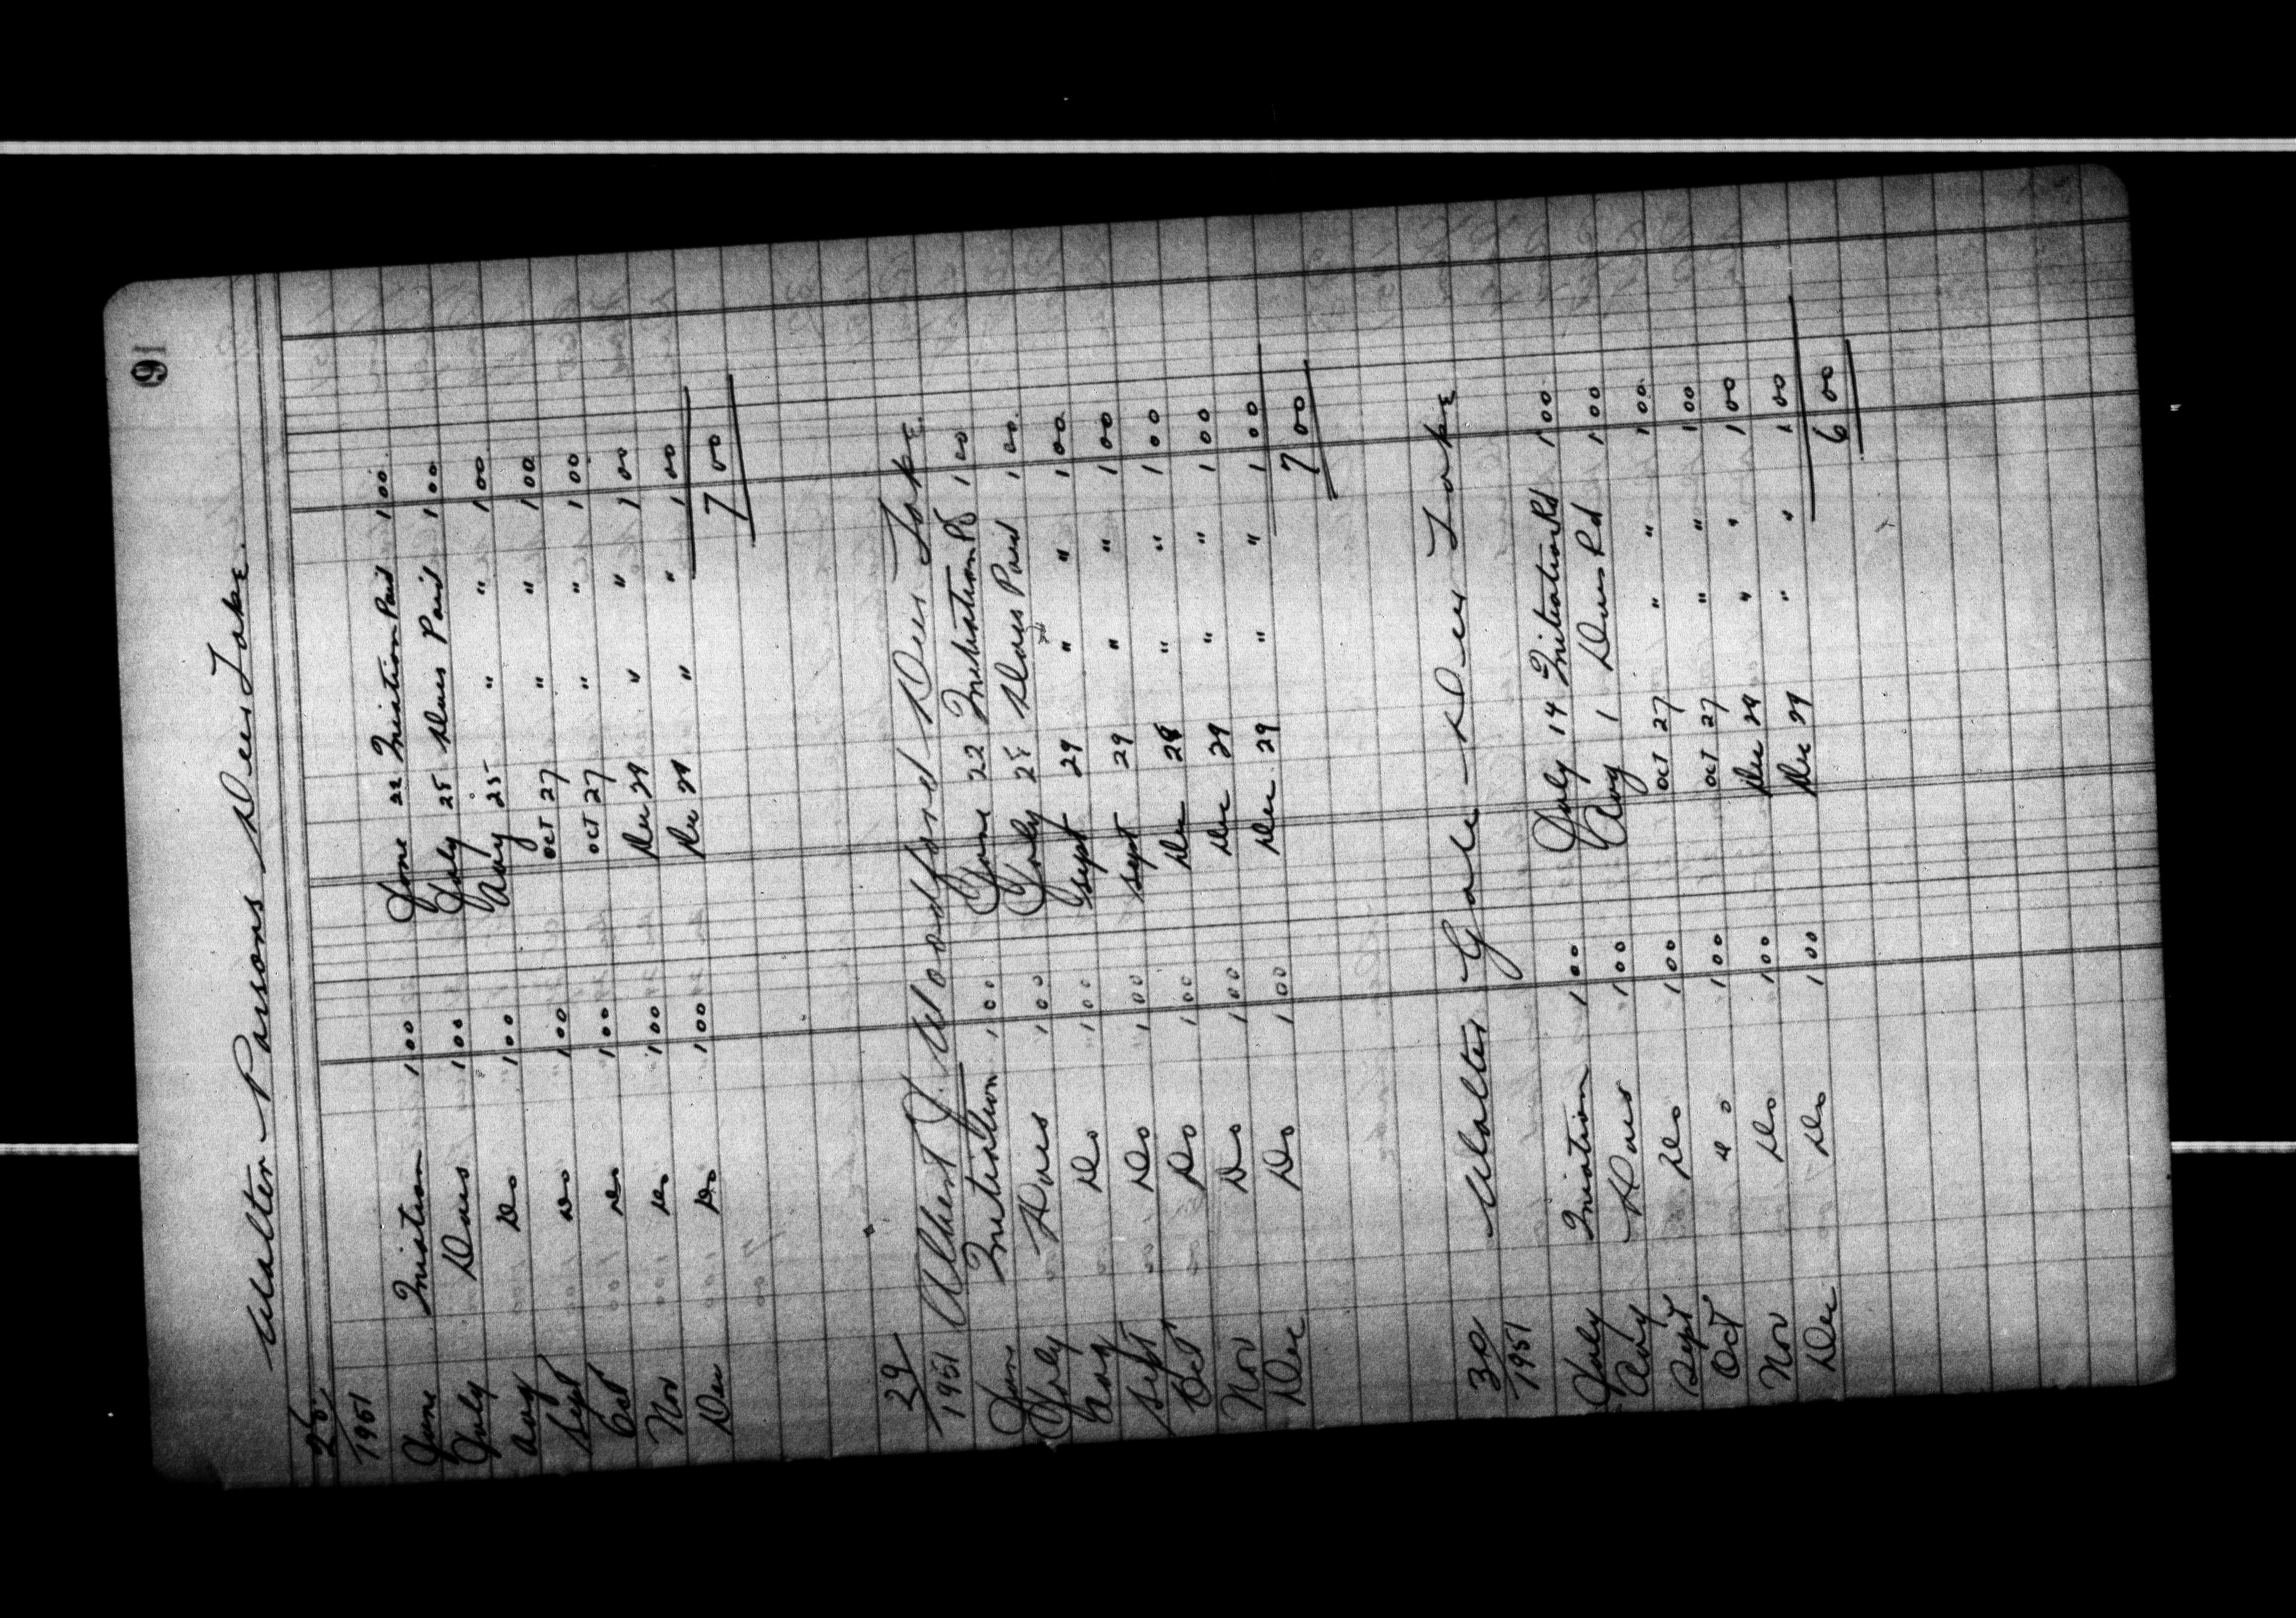 91
Walter Parsons Deer Lake.
28
1951
June Iniation 1 00 June 22 Iniation Paid 1 00
July Dues 1 00 July 25 Dues Paid 1 00
Aug Do 1 00 Aug 25 " " 1 00
Sept Do 1 00 Oct 27 " " 1 00
Oct Do 1 00 Oct 27 " " 1 00
Nov Do 1 00 Dec 29 " " 1 00
Dec Do 1 00 Dec 29 " " 1 00
7 00
29
1951 Albert J. Woodford Deer Lake.
June Initiation 1 00 June 22 Initiation Pd 1 00
July Dues 1 00 July 25 Dues Paid 1 00
Aug Do 1 00 Sept 29 " " 1 00
Sept Do 1 00 Sept 29 " " 1 00
Oct Do 1 00 Dec 28 " " 1 00
Nov Do 1 00 Dec 29 " " 1 00
Dec Do 1 00 Dec 29 " " 1 00
7 00
30 Walter Gale - Deer Lake
1951
July Iniation 1 00 July 14 Initiation Pd 1 00
Aug Dues 1 00 Aug 1 Dues Pd 1 00
Sept Do 1 00 Oct 27 " " 1 00
Oct Do 1 00 Oct 27 " " 1 00
Nov Do 1 00 Dec 29 " " 1 00
Dec Do 1 00 Dec 29 " " 1 00
6 00